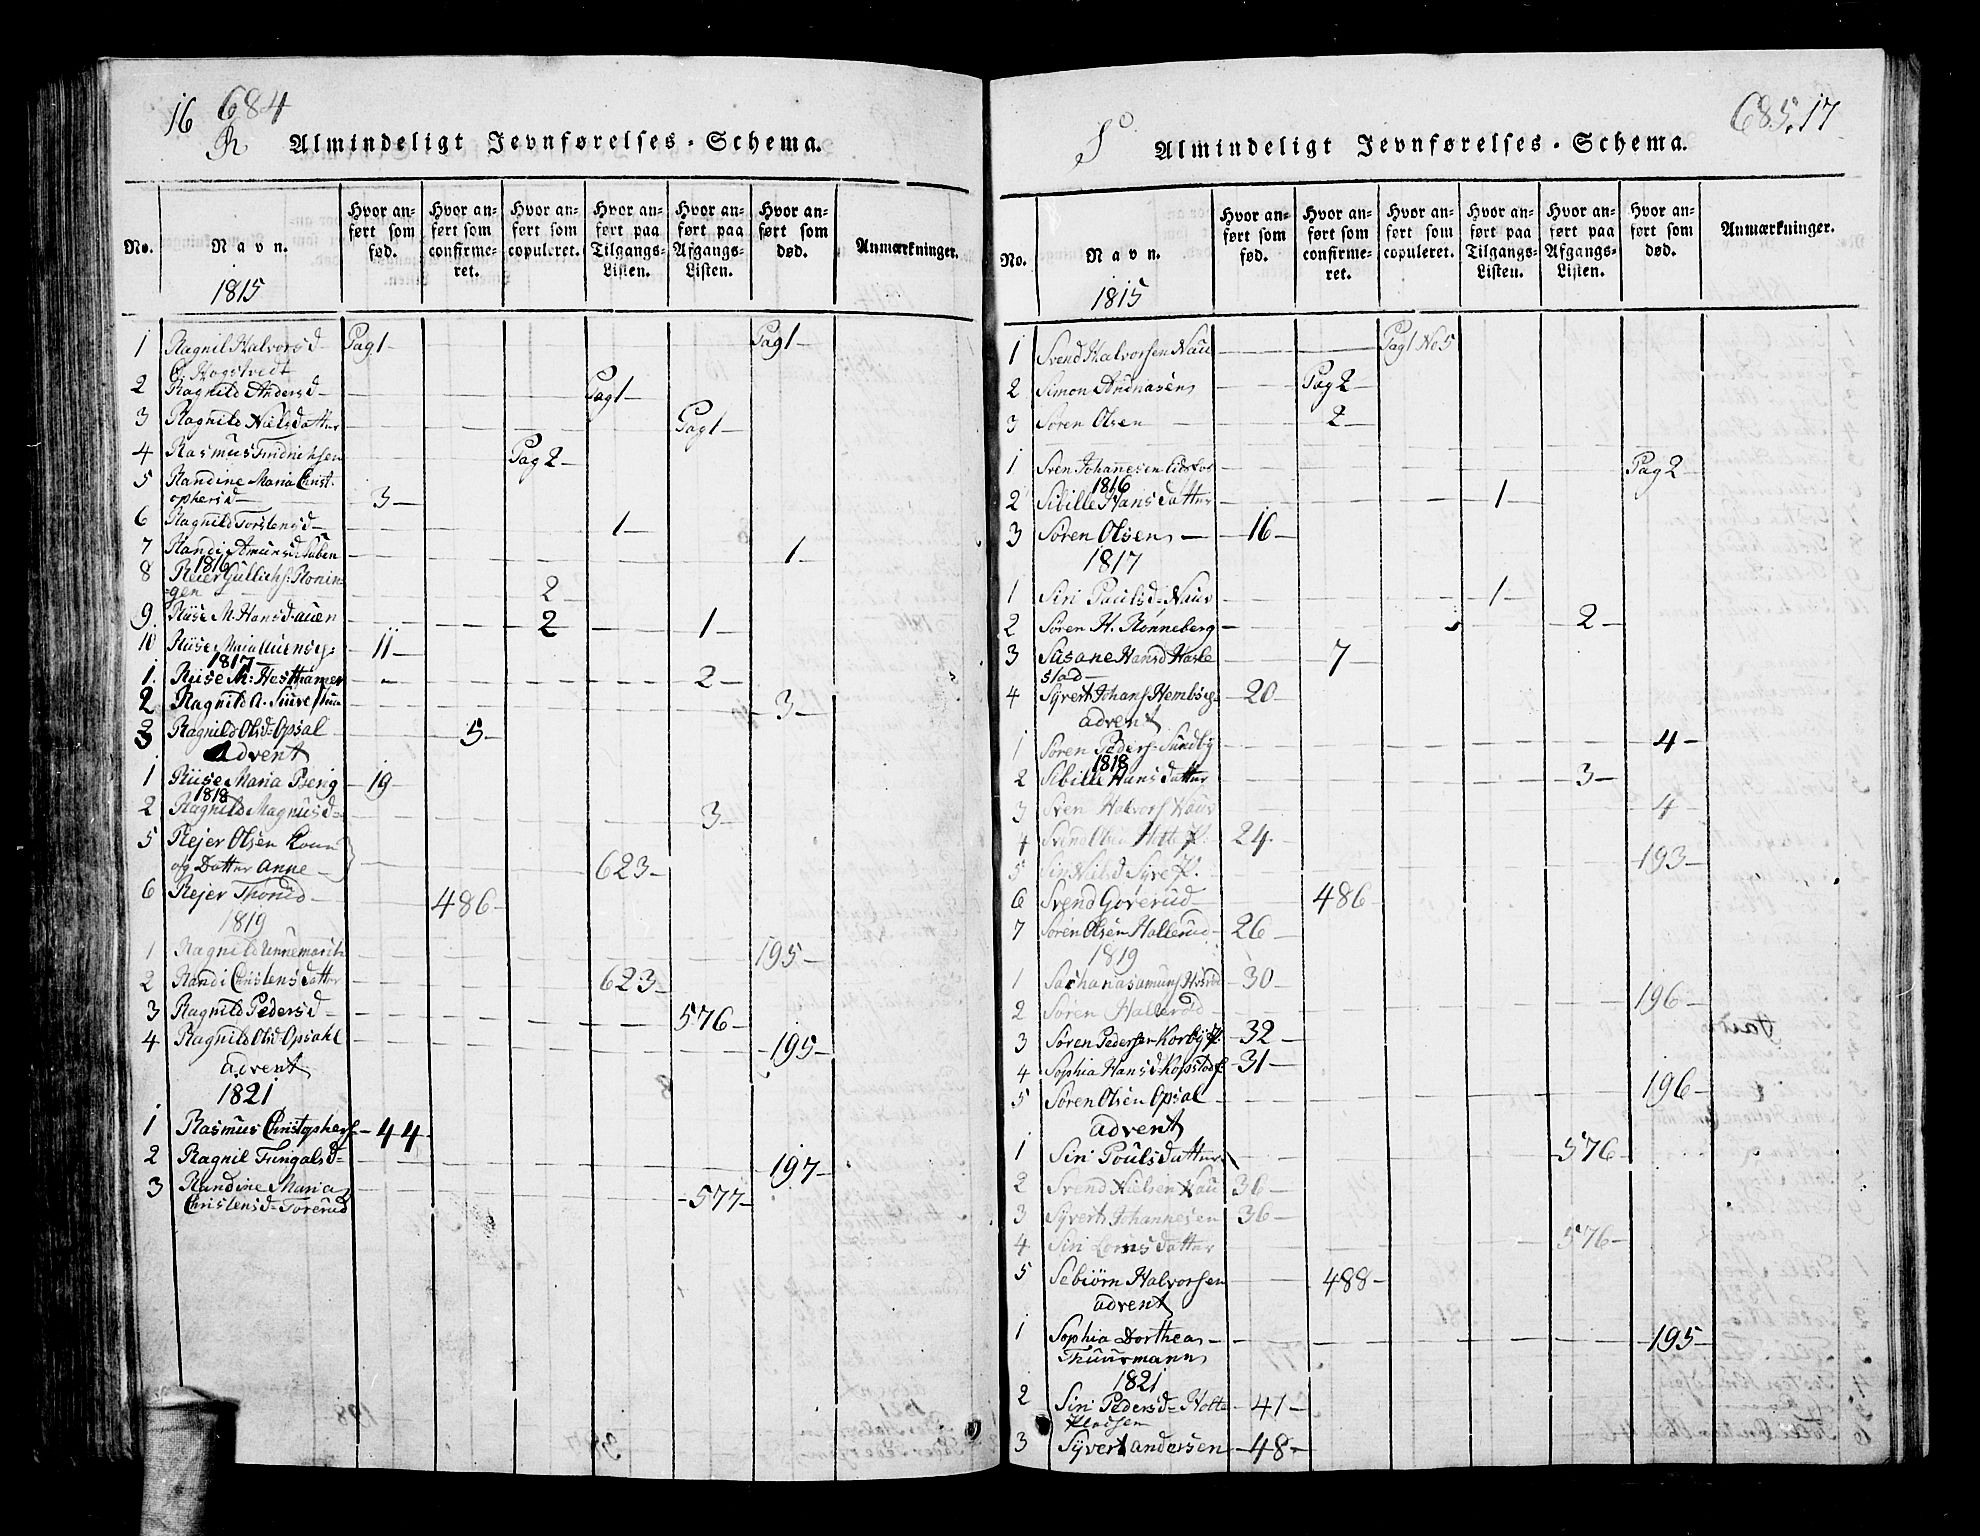 16 684
R Almindeligt Jevnførelses-Schema.
No.
Navn.
1815
Hvor anført som fød.
Hvor anført som confirmeret.
Hvor anført som copuleret.
Hvor anført paa Tilgangs-Listen.
Hvor anført paa Afgangs-Listen.
Hvor anført som død.
Anmærkninger.
1 Ragnil Halvorsd Pag 1 Pag 1
2 Ragnild Andersd Pag 1
3 Ragnild Nielsdatter Pag 1
4 Rasmus Fridrichsen Pag 2
5 Randine Maria Christ-
ophersd 3
6 Ragnild Torstensd 1
7 Randi Amunsd 1
1816
8 Reier Gullichs: Ronin-
gen 2
9 Riise M. Hansd 2 1
10 Riise 11
1817
1 Riise M: 2
2 Ragnild A. 3
3 Ragnild Olsd Opsal 5
Advent
1 Riise Maria Berig 19
1818
2 Ragnild Magnusd 3
5 Rejer Olsen
og Datter Anne 623
6 Rejer Thorud 486
1819
1 Ragnild 195
2 Randi Christensdatter 623
3 Ragnild Pedersd 576
4 Ragnild Olsd Opsahl 195
advent
1821
1 Rasmus Christophers 44
2 Ragnil Tungalsd 197
3 Randine Maria
Christensd Torerud 577
S 685.17
Almindeligt Jevnførelses-Schema.
No.
Navn.
1815
Hvor anført som fød.
Hvor anført som confirmeret.
Hvor anført som copuleret.
Hvor anført paa Tilgangs-Listen.
Hvor anført paa Afgangs-Listen.
Hvor anført som død.
Anmærkninger.
1 Svend Halvorsen Pag 1 No 5
2 Simon Andnasen Pag 2
3 Søren Olsen 2
1 Sven Johanesen Pag 2
1816
2 Sibille Hansdatter 1
3 Søren Olsen 16
1817
1 Siri Paulsd 1
2 Søren H. Rønneberg 2
3 Susane Hansd Hasle
stad 7
4 Syvert Johans 20
advent
1 Søren Peders: Sundby 4
1818
2 Sibille Hansdatter 3
3 Sven Halvors 4
4 Svend Olsen 24
5 Siri Nielsd 193
6 Svend Gorerud 486
7 Søren Olsen Hallerud 26
1819
1 30
2 Søren Hallerød 196
3 Søren Pedersen Korby 32
4 Sophia Hansd Kopstad 31
5 Søren Olsen Opsal 196
advent
1 Siri Poulsdatter 576
2 Svend Nielsen Nau 36
3 Syvert Johannesen 36
4 Siri 576
5 Sebiörn Halvorsen 488
advent
1 Sophia Dorthea 195
Thuurmann
1821
2 Siri Pedersd Holte 41
3 Syvert andersen 48